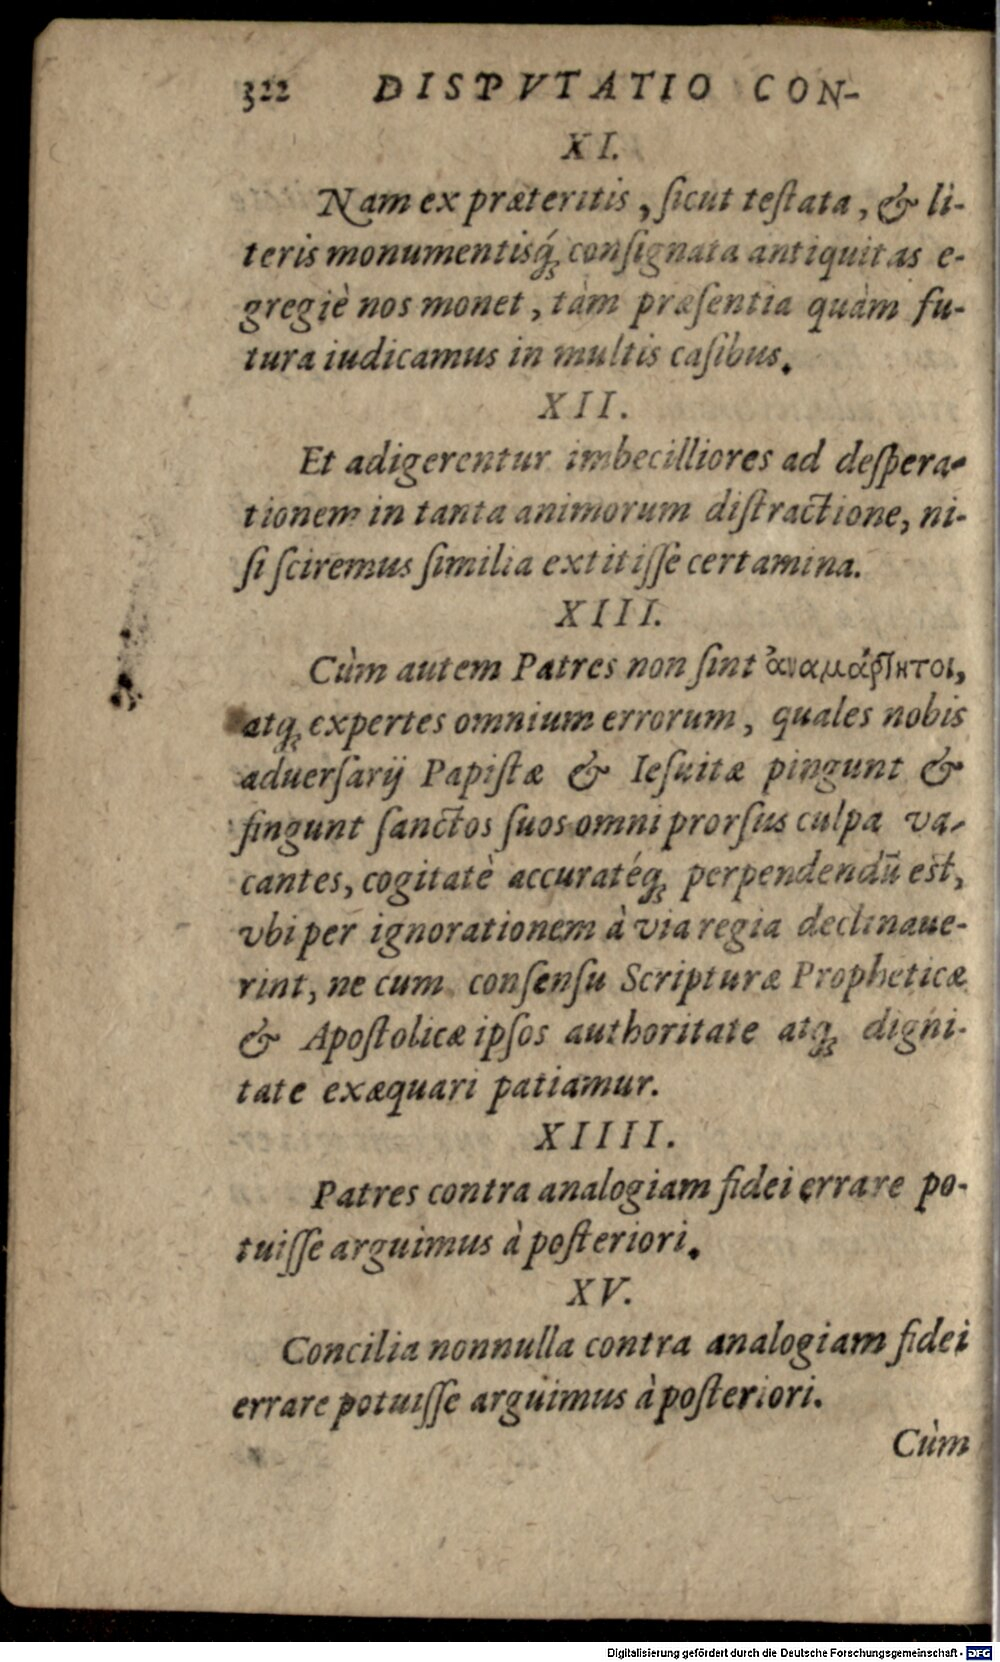 322 DISPVTATIO CON-
XI.
Nam ex præteritis, ſicut teſtata, & li-
teris monumentisq́ꝫ conſignata antiquitas e-
gregiè nos monet, tàm præſentia quàm fu-
tura iudicamus in multis caſibus.
XII.
Et adigerentur imbecilliores ad deſpera-
tionem in tanta animorum diſtractione, ni-
ſi ſciremus ſimilia extitiſſe certamina.
XIII.
Cùm autem Patres non ſint ἀναμάρτητοι,
atqꝫ expertes omnium errorum, quales nobis
aduerſarij Papiſtæ & Ieſuitæ pingunt &
fingunt ſanctos ſuos omni prorſus culpa va-
cantes, cogitatè accuratéqꝫ perpendendū eſt,
vbi per ignorationem à via regia declinaue-
rint, ne cum conſenſu Scripturæ Propheticæ
& Apoſtolicæ ipſos authoritate atqꝫ digni-
tate exæquari patiamur.
XIIII.
Patres contra analogiam fidei errare po-
tuiſſe arguimus à poſteriori.
XV.
Concilia nonnulla contra analogiam fidei
errare potuiſſe arguimus à poſteriori.
Cùm
Digitalisierung gefördert durch die Deutsche Forschungsgemeinschaft - DFG